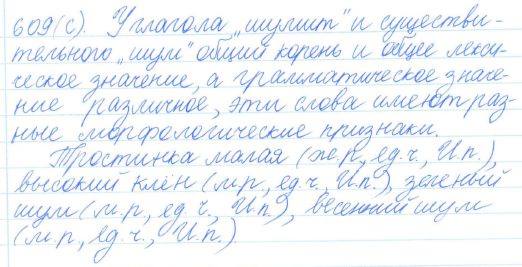 609(с). У глагола „шумит" и существи-
тельного „шум" общий корень и общее лекси-
ческое значение, а грамматическое значе-
ние различное, эти слова имеют раз-
ные морфологические признаки.
Тростинка малая (ж.р., ед.ч., И.п.),
высокий клён (м.р., ед.ч., И.п.), зеленый
шум (м.р., ед.ч., И.п.), весенний шум
(м.р., ед.ч., И.п.)